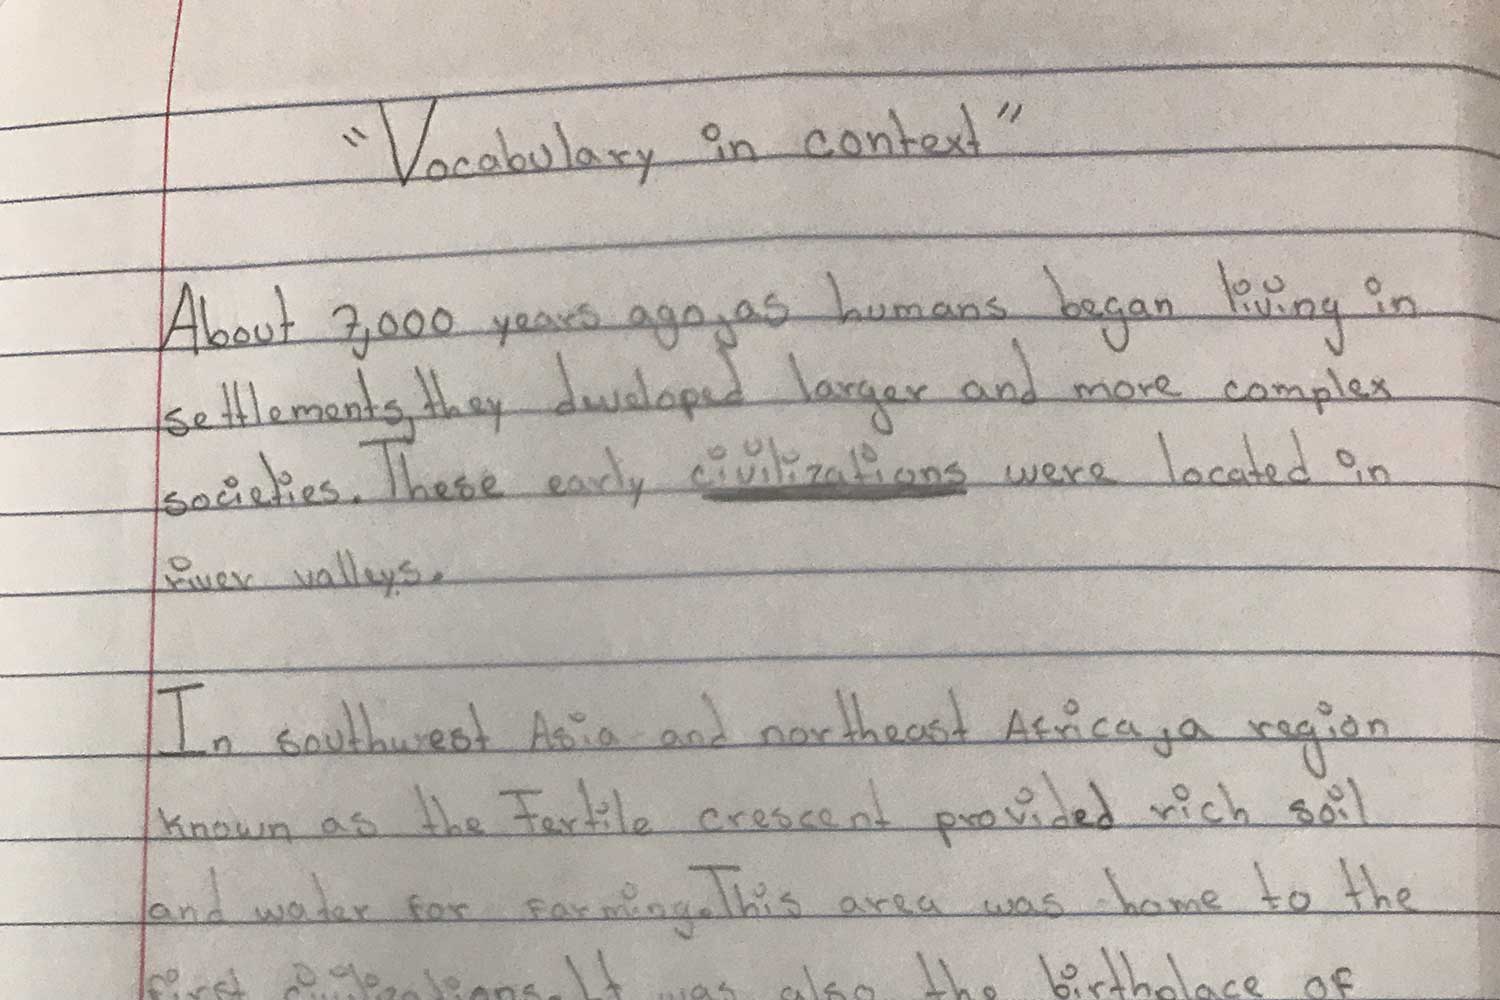 "Vocabulary in context"
About 7,000 years ago, as humans began living in
settlements, they dweloped larger and more complex
societies. These early civilizations were located in
river valleys.
In southwest Asia and northeast Africa, a region
known as the Fertile crescent provided rich soil
and water for farming. This area was home to the
first civilizations. It was also the birthplace of